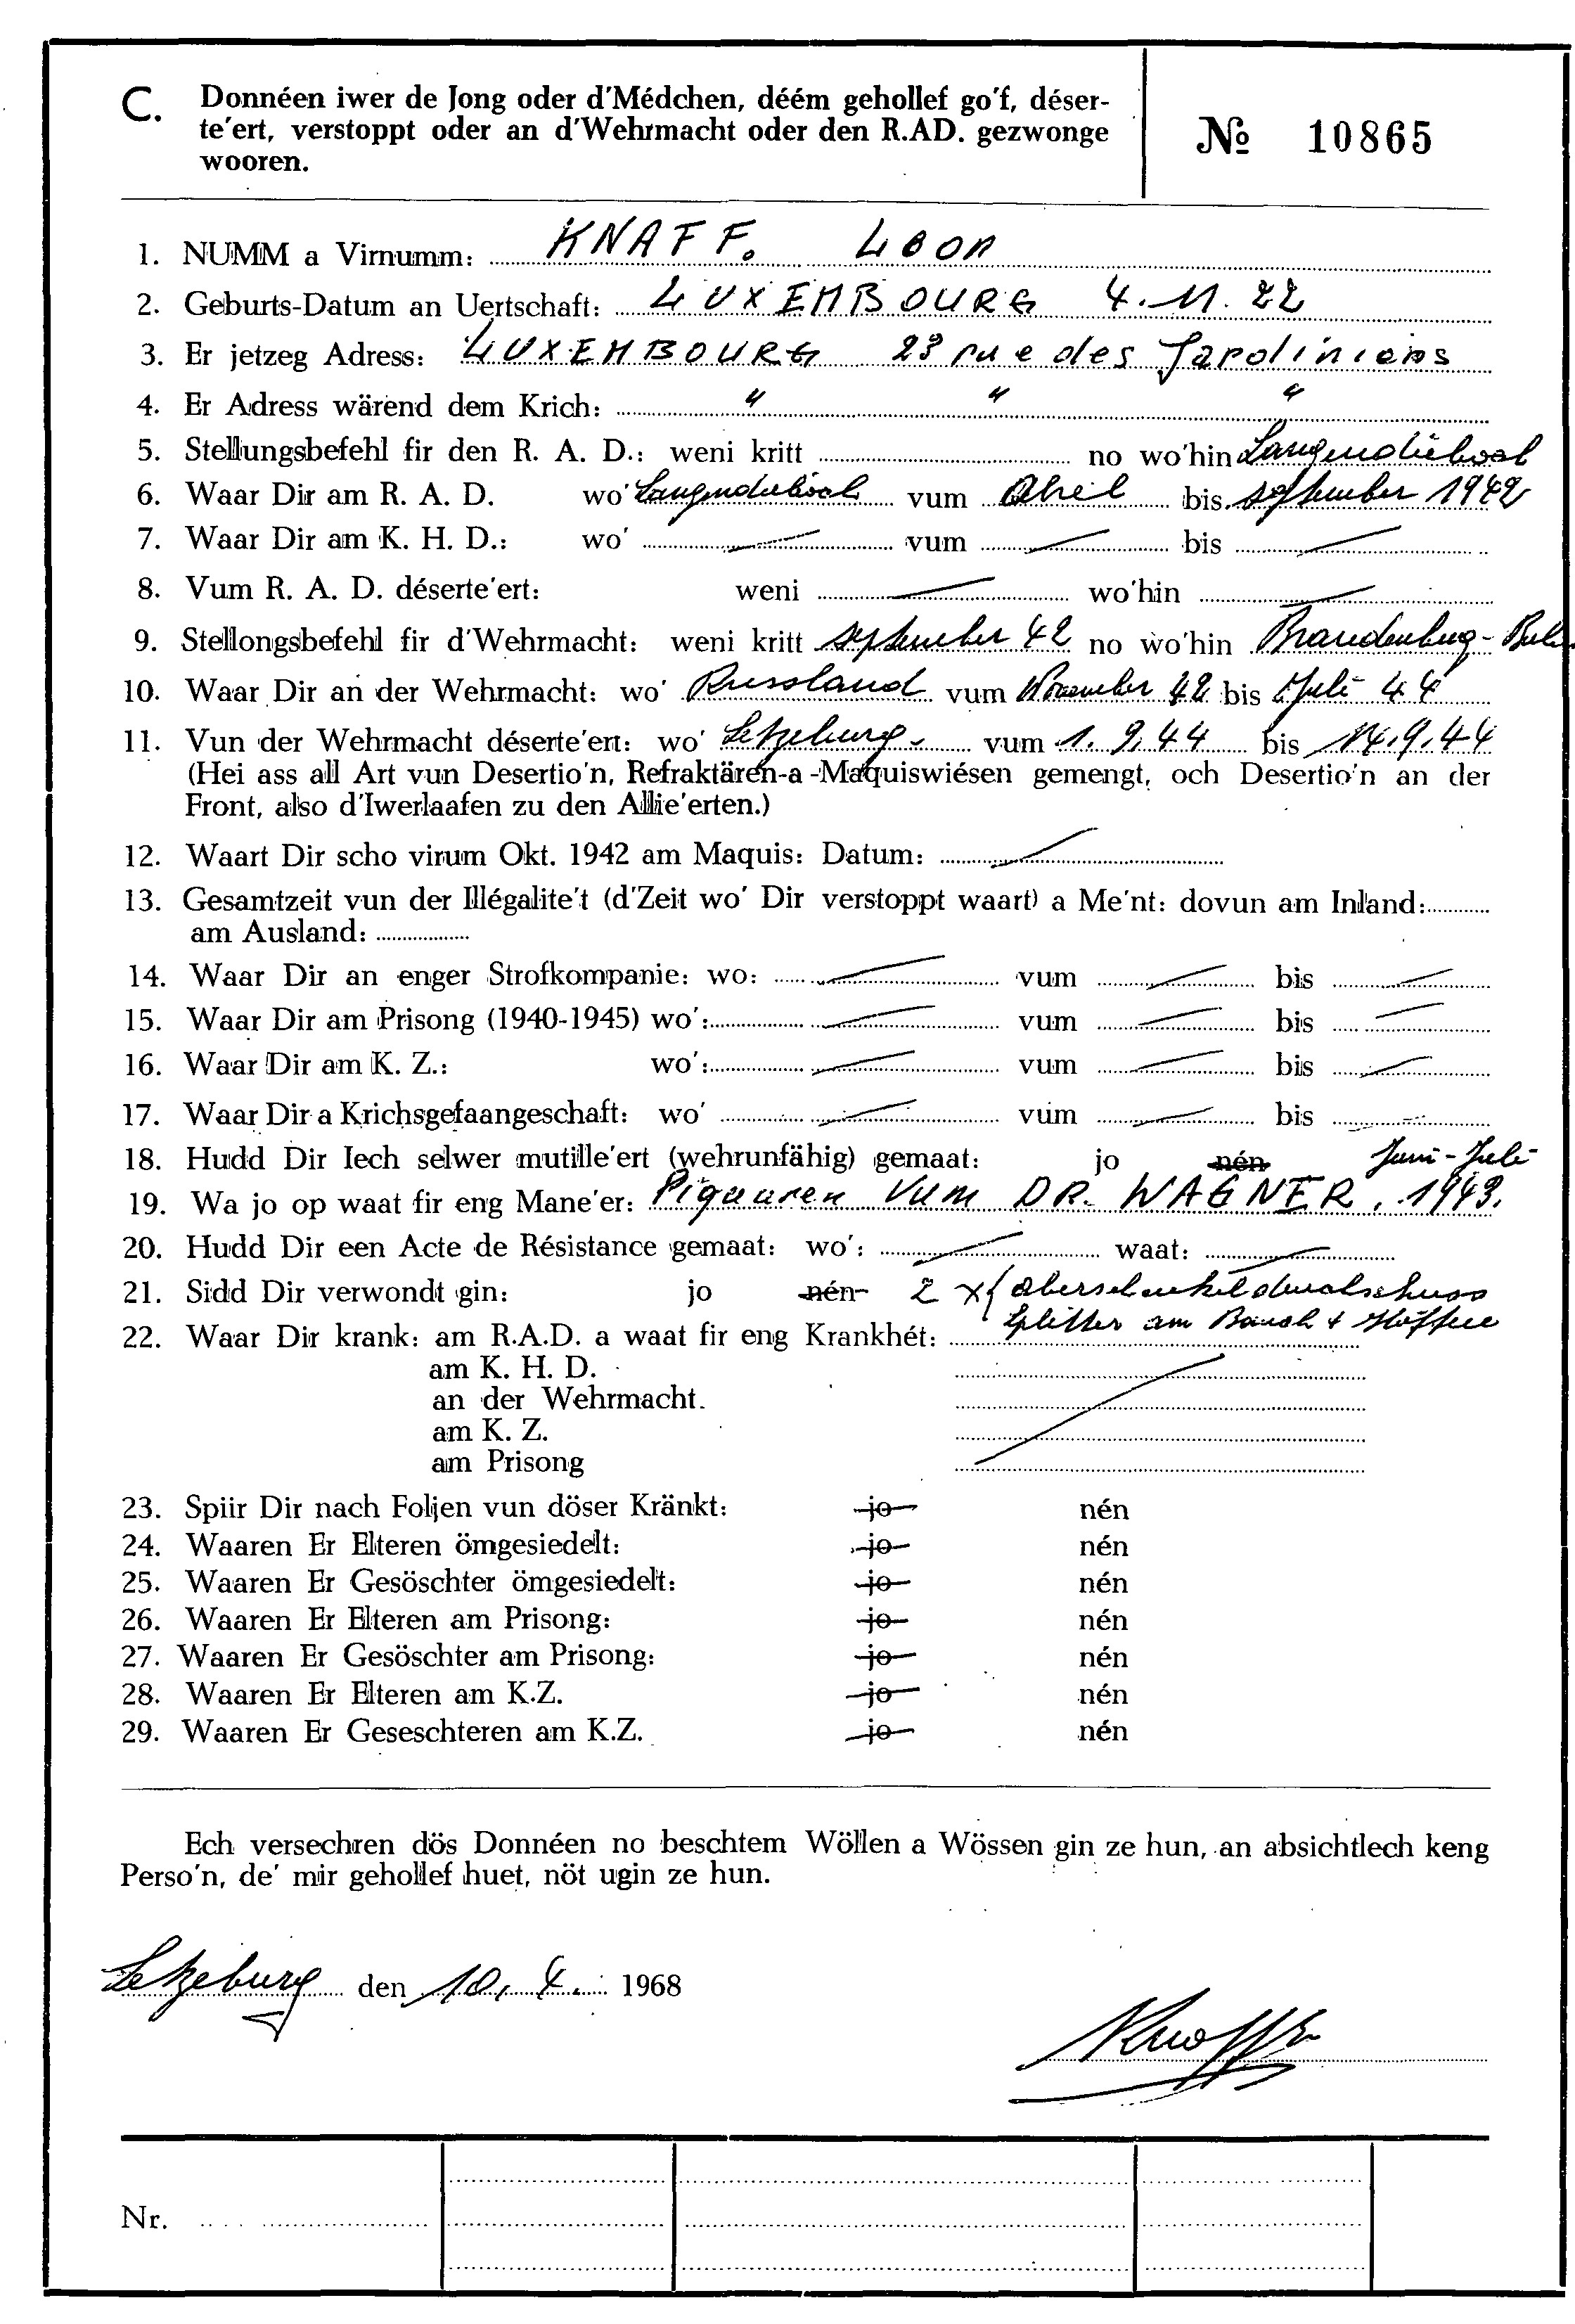 C. Donnéen iwer de Jong oder d'Médchen, déém gehollef go'f, déser-
te'ert, verstoppt oder an d'Wehrmacht oder den R.AD. gezwonge
wooren.
№ 10865
1. NUMM a Virnumm: KNAFF. Leon
2. Geburts-Datum an Uertschaft: LUXEMBOURG 4.11.22
3. Er jetzeg Adress: LUXEMBOURG 23 rue des Jardiniers
4. Er Adress wärend dem Krich: " " "
5. Stellungsbefehl fir den R. A. D.: weni kritt no wo'hin Langendiebach
6. Waar Dir am R. A. D. wo' Langendiebach vum Abril bis september 1942
7. Waar Dir am K. H. D.: wo' vum bis
8. Vum R. A. D. déserte'ert: weni wo'hin
9. Stellongsbefehl fir d'Wehrmacht: weni kritt september 42 no wo'hin Brandenburg-
10. Waar Dir an der Wehrmacht: wo' Russland vum November 42 bis Juli 44
11. Vun der Wehrmacht déserte'ert: wo' Letzeburg. vum 1.9.44 bis 14.9.44
(Hei ass all Art vun Desertio'n, Refraktären-a-Maquiswiésen gemengt, och Desertio'n an der
Front, also d'Iwerlaafen zu den Allie'erten.)
12. Waart Dir scho virum Okt. 1942 am Maquis: Datum:
13. Gesamtzeit vun der Illégalite't (d'Zeit wo' Dir verstoppt waart) a Me'nt: dovun am Inland:
am Ausland:
14. Waar Dir an enger Strofkompanie: wo: vum bis
15. Waar Dir am Prisong (1940-1945) wo': vum bis
16. Waar Dir am K. Z.: wo': vum bis
17. Waar Dir a Krichsgefaangeschaft: wo' vum bis
18. Hudd Dir Iech selwer mutille'ert (wehrunfähig) gemaat: jo nén Juni-Juli
19. Wa jo op waat fir eng Mane'er: Piqueuren vum DR. WAGNER. 1943.
20. Hudd Dir een Acte de Résistance gemaat: wo': waat:
21. Sidd Dir verwondt gin: jo nén 2 x { Oberschenkeldurchschuss
Splitter am Bauch + Höffte
22. Waar Dir krank: am R.A.D. a waat fir eng Krankhét:
am K. H. D.
an der Wehrmacht.
am K. Z.
am Prisong
23. Spiir Dir nach Foljen vun döser Kränkt: jo nén
24. Waaren Er Elteren ömgesiedelt: jo nén
25. Waaren Er Gesöschter ömgesiedelt: jo nén
26. Waaren Er Elteren am Prisong: jo nén
27. Waaren Er Gesöschter am Prisong: jo nén
28. Waaren Er Elteren am K.Z. jo nén
29. Waaren Er Geseschteren am K.Z. jo nén
Ech versechren dös Donnéen no beschtem Wöllen a Wössen gin ze hun, an absichtlech keng
Perso'n, de' mir gehollef huet, nöt ugin ze hun.
Letzeburg den 10. 4. 1968
Knaff
Nr.